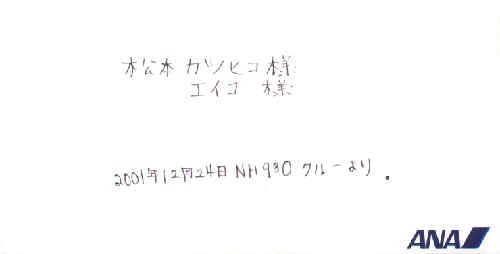 松本 カツヒコ 様
エイコ 様
2001年12月24日 NH930 クルーより.
ANA